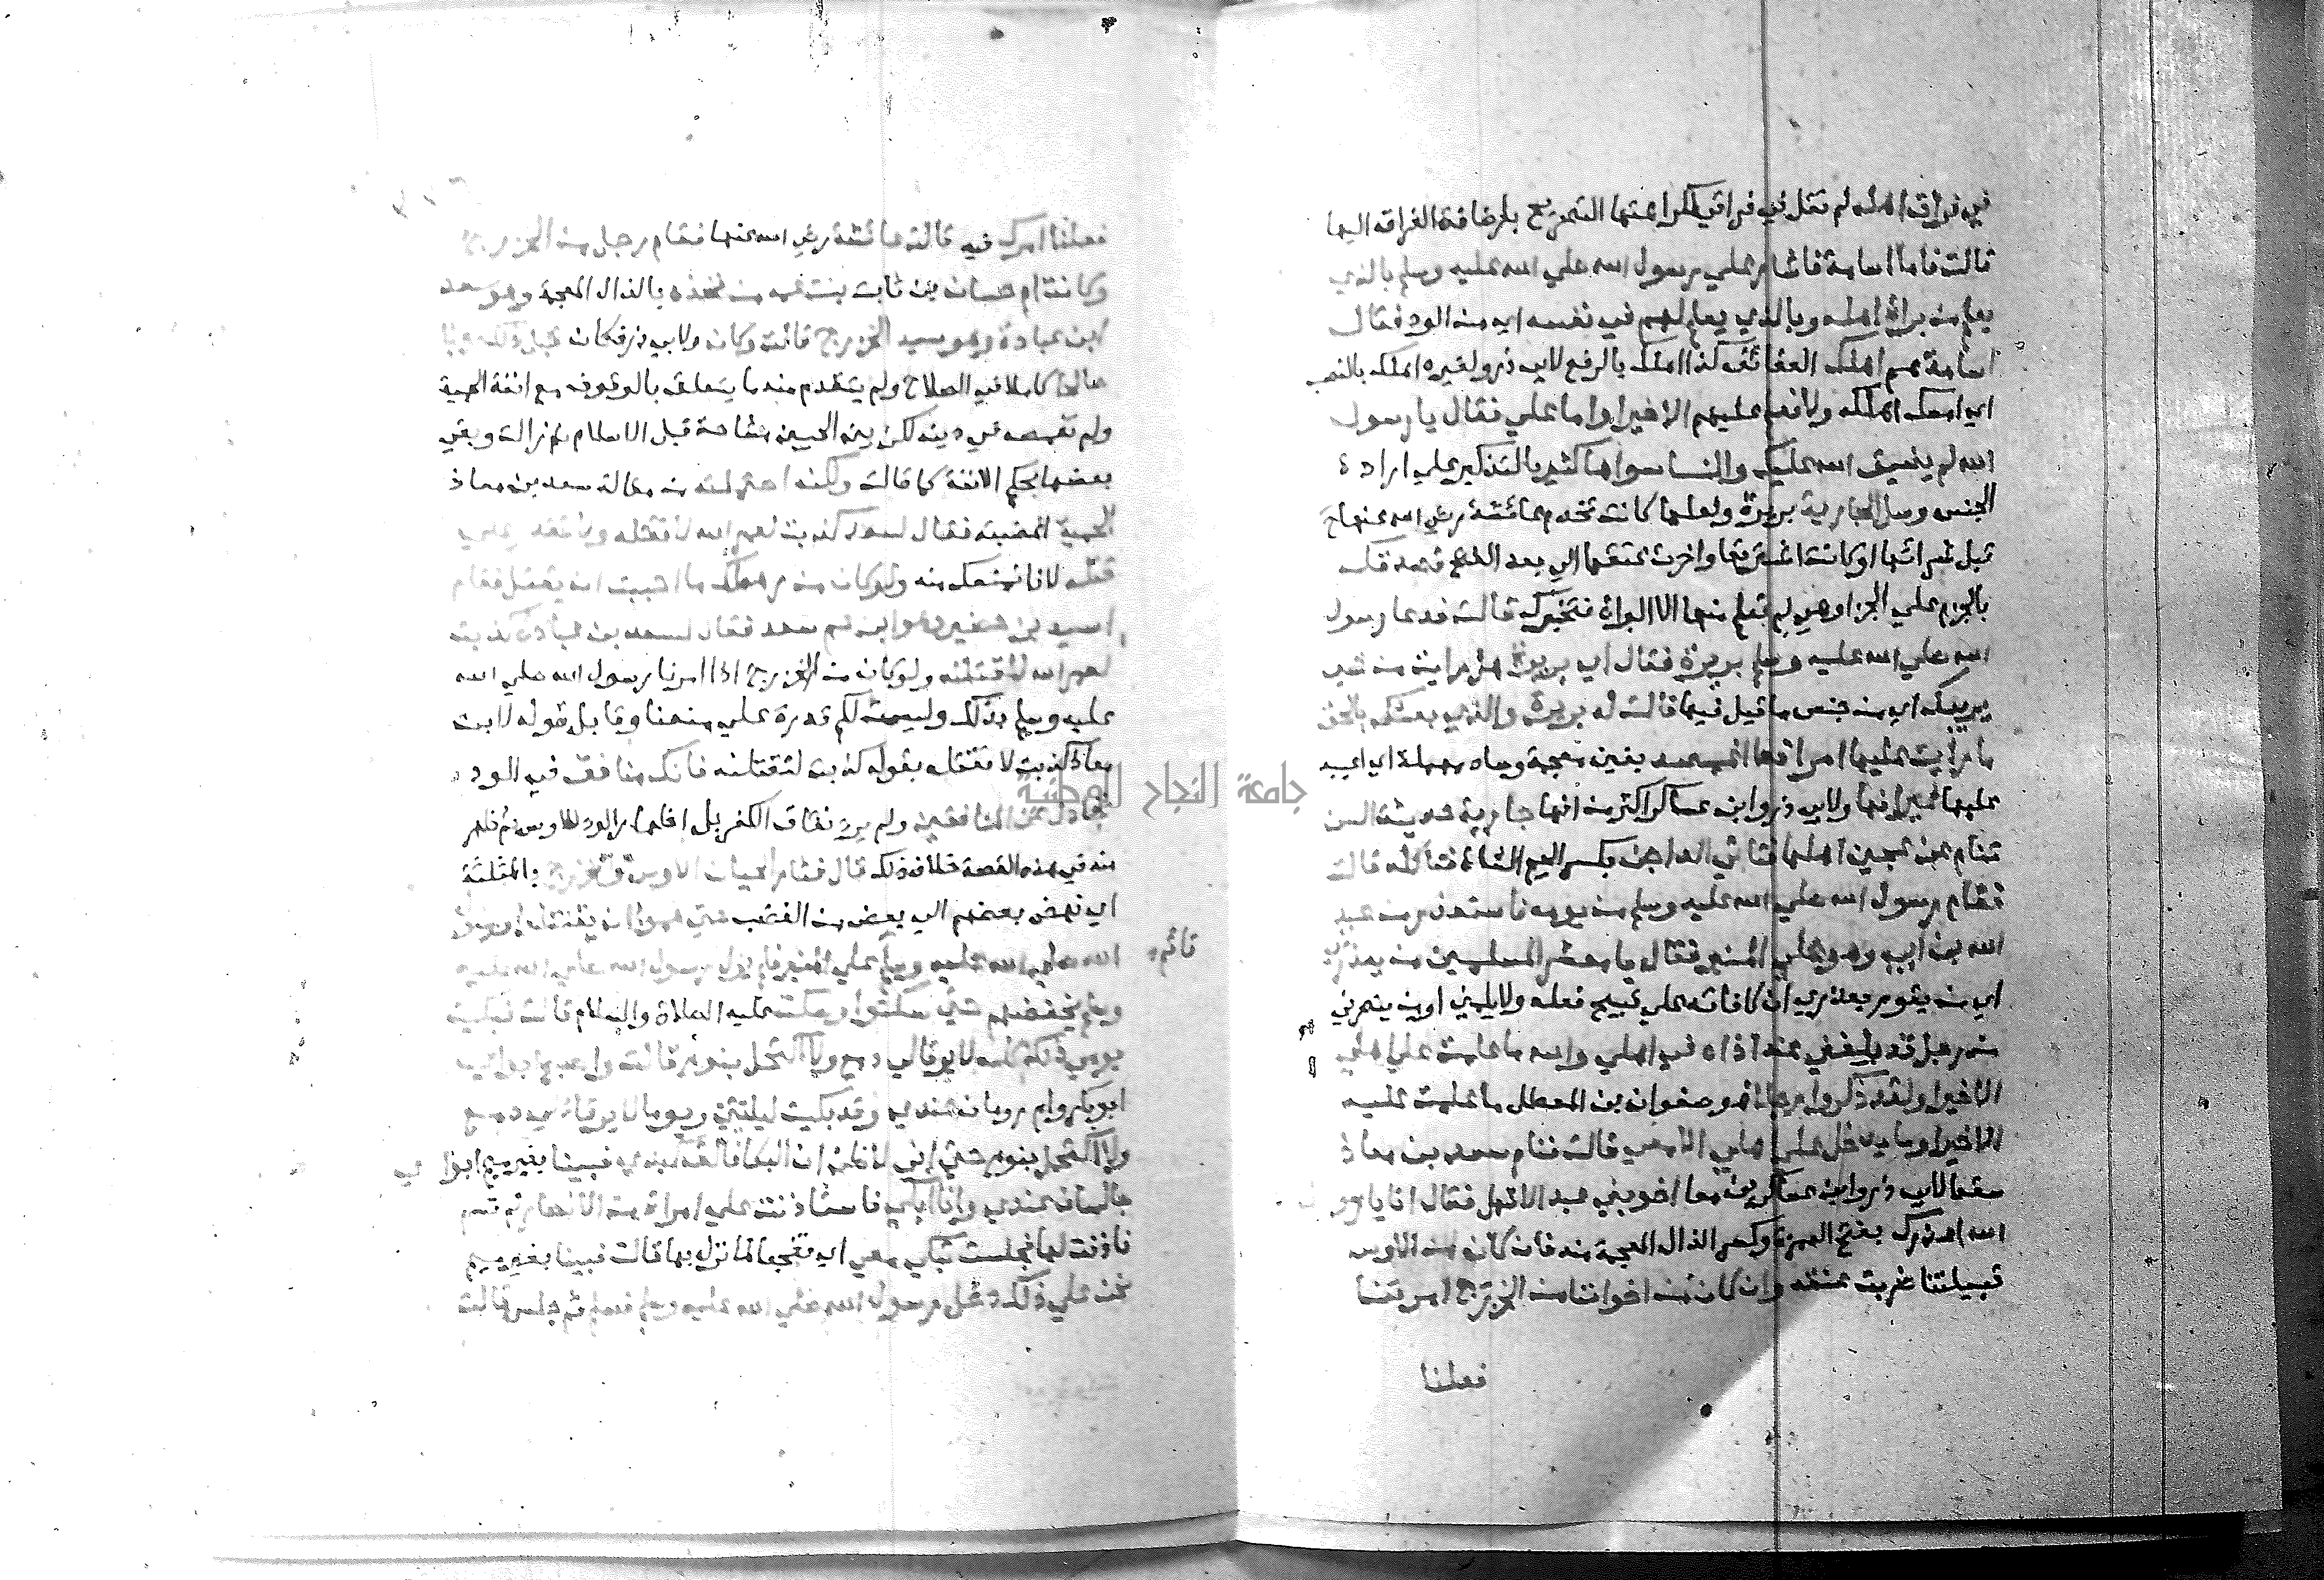 في فراق اهله لم تقل في فراقي لكراهتها التصريح باضافة الفراق اليها
قالت فاما اسامة فاشار علي رسول الله صلي الله عليه وسلم بالذي
يعلم من براة اهله وبالذي يعلم لهم في نفسه اي من الود فقال
اسامة هم اهلك العفائف كذا اهلك بالرفع لابي ذر ولغيره اهلك بالنصب
اي امسك اهلك ولا نعلم عليهم الا خيرا واما علي فقال يا رسول
الله لم يضيق الله عليك والنسا سواها كثير بالتذكير علي ارادة
الجنس وسل الجارية بريرة ولعلها كانت تخدم عائشة رضي الله عنها ح
قبل شرائها او كانت اشترتها واخرت عتقها الي بعد الفتح تصدقك
بالجزم علي الجزا وهي لم تعلم منها الا البراة فتخبرك قالت فدعا رسول
الله صلي الله عليه وسلم بريرة فقال اي بريرة هل رايت من شي
يريبك اي من جنس ما قيل فيها قالت له بريرة والذي بعثك بالحق
ما رايت عليها امرا قط اغمصه بغين معجمة وصاد مهملة اي اعيبه
عليها غير انها ولابي ذر وابن عساكر اكثر من انها جارية حديثة السن
تنام عن عجين اهلها فتاتي الداجن بكسر الجيم الشاة فتاكله قالت
فقام رسول الله صلي الله عليه وسلم من يومه فاستعذر من عبد
الله بن ابي وهو علي المنبر فقال يا معشر المسلمين من يعذرني
اي من يقوم بعذري ان كافاته علي قبيح فعله ولا يلمني او من ينصرني
من رجل قد بلغني عنه اذاه في اهلي والله ما علمت علي اهلي
الا خيرا ولقد ذكروا رجلا هو صفوان بن المعطل ما علمت عليه
الا خيرا وما يدخل علي اهلي الا معي قالت فقام سعد بن معاذ
سقط لابي ذر وابن عساكر بن معاذ اخو بني عبد الاشهل فقال انا يا رسول
الله اعذرك بفتح الهمزة وكسر الذال المعجمة منه فان كان من الاوس
قبيلتنا ضربت عنقه وان كان من اخواننا من الخزرج امرتنا
فعلنا
فعلنا امرك فيه قالت عائشة رضي الله عنها فقام رجل من الخزرج
وكانت ام حسان بن ثابت بنت عمه من فخذه بالذال المعجمة وهو سعد
ابن عبادة وهو سيد الخزرج قالت وكان ولابي ذر فكان قبل ذلك رجلا
صالحا كاملا في الصلاح ولم يتقدم منه ما يتعلق بالوقوف مع انفة الحمية
ولم تغمصه في دينه لكن بين الحيين مشاحة قبل الاسلام ثم زالت وبقي
بعضها بحكم الانفة كما قالت ولكنه احتملته من مقالة سعد بن معاذ
الحمية اغضبته فقال لسعد كذبت لعمر الله لا تقتله ولا تقدر علي
قتله لانا نمنعك منه ولو كان من رهطك ما احببت ان يقتل فقام
اسيد بن حضير وهو ابن عم سعد فقال لسعد بن عبادة كذبت
لعمر الله لنقتلنه ولو كان من الخزرج اذا امرنا رسول الله صلي الله
عليه وسلم بذلك وليست لكم قدرة علي منعنا وقابل قوله لابن
معاذ كذبت لا تقتله بقوله كذبت لنقتلنه فانك منافق في الود
تجادل عن المنافقين ولم يرد نفاق الكفر بل اظهار الود للاوس ثم ظهر
منه في هذه القصة خلاف ذلك قال فثار الحيان الاوس والخزرج بالمثلثة
اي نهض بعضهم الي بعض من الغضب حتي هموا ان يقتتلوا ورسول
الله صلي الله عليه وسلم علي المنبر فلم يزل رسول الله صلي الله عليه
قائم
وسلم يخفضهم حتي سكتوا وسكت عليه الصلاة والسلام قالت فبكيت
يومي ذلك كله لا يرقا لي دمع ولا اكتحل بنوم قالت واصبح ابواي
ابو بكر وام رومان عندي وقد بكيت ليلتين ويوما لا يرقا لي دمع
ولا اكتحل بنوم حتي اني لاظن ان البكا فالق كبدي فبينا بغير ميم ابواي
جالسان عندي وانا ابكي فاستاذنت علي امراة من الانصار لم تسم
فاذنت لها فجلست تبكي معي اي تفجعا لما نزل بها قالت فبينا بغير ميم
نحن علي ذلك دخل رسول الله صلي الله عليه وسلم فسلم ثم جلس قالت
جامعة النجاح الوطنية